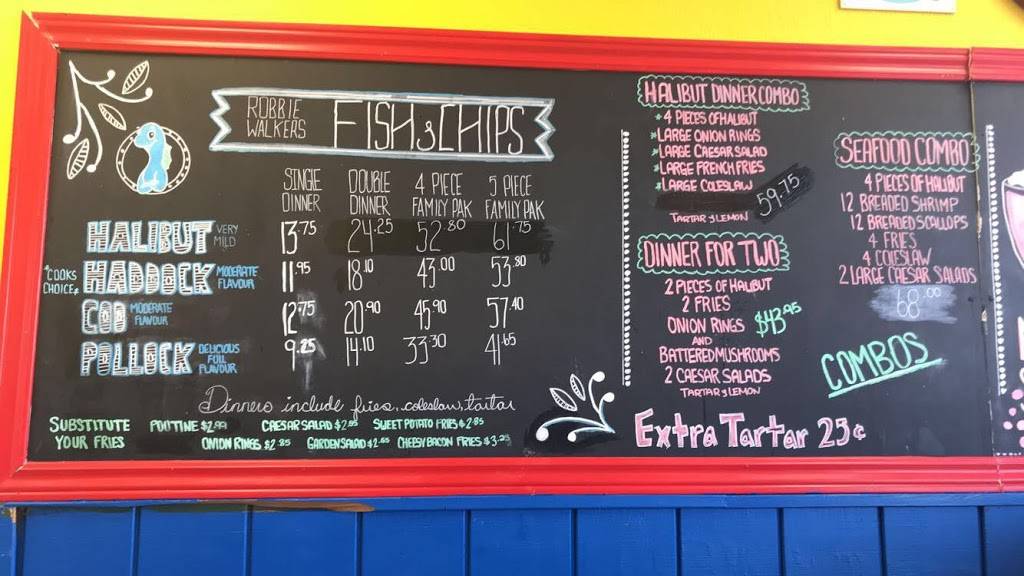 ROBBIE WALKERS FISH & CHIPS
SINGLE DINNER DOUBLE DINNER 4 PIECE FAMILY PAK 5 PIECE FAMILY PAK
HALIBUT VERY MILD 13.75 24.25 52.80 61.75
*COOKS CHOICE* HADDOCK MODERATE FLAVOUR 11.95 18.10 43.00 53.80
COD MODERATE FLAVOUR 12.75 20.90 45.90 57.40
POLLOCK DELICIOUS FULL FLAVOUR 9.25 14.10 33.30 41.65
Dinners include fries, coleslaw, tartar
SUBSTITUTE YOUR FRIES
POUTINE $2.99 CAESAR SALAD $2.85 SWEET POTATO FRIES $2.85
ONION RINGS $2.95 GARDEN SALAD $2.85 CHEESY BACON FRIES $3.25
HALIBUT DINNER COMBO
*4 PIECES OF HALIBUT
*LARGE ONION RINGS
*LARGE CAESAR SALAD
*LARGE FRENCH FRIES
*LARGE COLESLAW
59.75
TARTAR & LEMON
DINNER FOR TWO
2 PIECES OF HALIBUT
2 FRIES
ONION RINGS $43.95
AND
BATTERED MUSHROOMS
2 CAESAR SALADS
TARTAR & LEMON
SEAFOOD COMBO
4 PIECES OF HALIBUT
12 BREADED SHRIMP
12 BREADED SCALLOPS
4 FRIES
4 COLESLAW
2 LARGE CAESAR SALADS
68.00
COMBOS
Extra Tartar 25¢